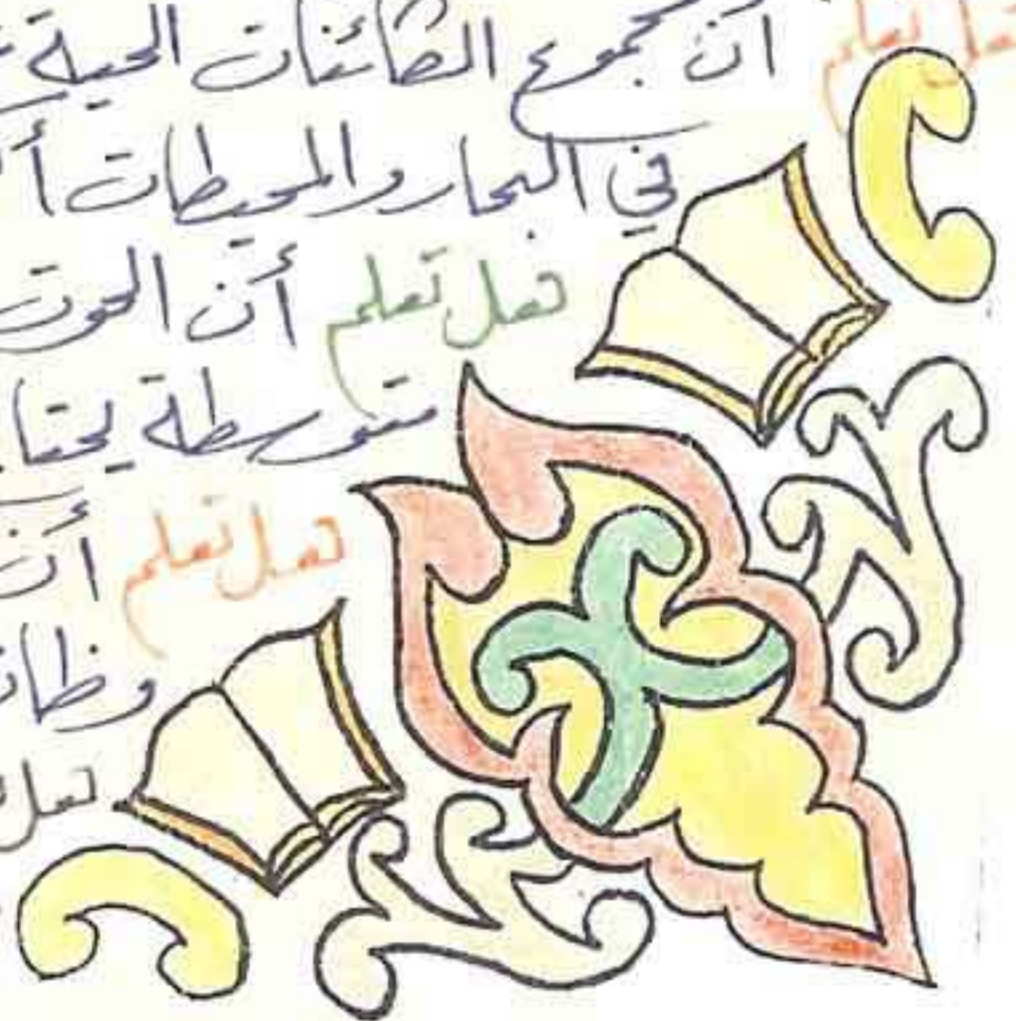 فهل تعلم أن مجموع الكائنات الحية
في البحار والمحيطات
فهل تعلم أن الحوت
متوسطة يحتا
فهل تعلم أن
وظا
فهل